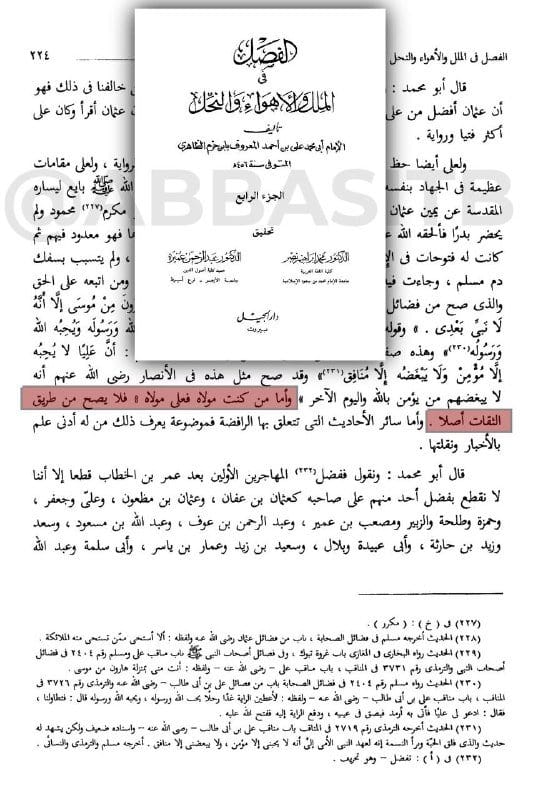 الفصل فى الملل والأهواء والنحل
٢٢٤
الفصل
فى
الملل والأهواء والنحل
تأليف
الإمام أبى محمد على بن أحمد المعروف بابن حزم الظاهرى
المتوفى سنة ٤٥٦هـ
الجزء الرابع
تحقيق
الدكتور محمد إبراهيم نصر
الدكتور عبد الرحمن عميرة
كلية اللغة العربية
جامعة الإمام محمد بن سعود الإسلامية
عميد كلية أصول الدين
جامعة الأزهر - فرع أسيوط
دار الجيل
بيروت
@ABBAS TB
قال أبو محمد : خالفنا فى ذلك فهو
أن عثمان أفضل من على عثمان أقرأ وكان على
أكثر فتيا ورواية .
ولعلى أيضا حظ رواية ، ولعلى مقامات
عظيمة فى الجهاد بنفسه الله ﷺ بايع ليساره
المقدسة عن يمين عثمان مكرم(٢٢٧) محمود ولم
يحضر بدرًا فألحقه الله ها فهو معدود فيهم ثم
كانت له فتوحات فى الإ ، ولم يتسبب بسفك
دم مسلم ، وجاءت في ومن اتبعه على الحق
والذى صح من فضائل رُونَ مِنْ مُوسَى إِلَّا أَنَّهُ
لَا نَبِيَّ بَعْدِى . » وقوله َ وَرَسُولَه وَيُحِبُّه الله
وَرَسُولُه(٢٣٠)» وهذه صف : أنَّ عَلِيًا لا يُحِبُّه
إِلَّا مُؤْمِنٌ وَلَا يَبْغَضُه إِلَّا مُنَافِق(٢٣١)» وقد صح مثل هذه فى الأنصار رضى الله عنهم أنه
لا يبغضهم من يؤمن بالله واليوم الآخر » وأما من كنت مولاه فعلى مولاه » فلا يصح من طريق
الثقات أصلا . وأما سائر الأحاديث التى تتعلق بها الرافضة فموضوعة يعرف ذلك من له أدنى علم
بالأخبار ونقلتها .
قال أبو محمد : ونقول ففضل(٢٣٢) المهاجرين الأولين بعد عمر بن الخطاب قطعا إلا أننا
لا نقطع بفضل أحد منهم على صاحبه كعثمان بن عفان ، وعثمان بن مظعون ، وعلىّ وجعفر ،
وحمزة وطلحة والزبير ومصعب بن عمير ، وعبد الرحمن بن عوف ، وعبد الله بن مسعود ، وسعد
وزيد بن حارثة ، وأبى عبيدة وبلال ، وسعيد بن زيد وعمار بن ياسر ، وأبى سلمة وعبد الله
(٢٢٧) فى ( خ ) : ( مكرر ) .
(٢٢٨) الحديث أخرجه مسلم فى فضائل الصحابة ، باب من فضائل عثمان رضى الله عنه ولفظه : ألا أستحى ممّن تستحى منه الملائكة .
(٢٢٩) الحديث رواه البخارى فى المغازى باب غزوة تبوك ، وفى فضائل أصحاب النبى ﷺ باب مناقب على ومسلم رقم ٢٤٠٤ فى فضائل
أصحاب النبى والترمذى رقم ٣٧٣١ فى المناقب ، باب مناقب على – رضى الله عنه – ولفظه : أنت منى بمنزلة هارون من موسى .
(٢٣٠) الحديث رواه مسلم رقم ٢٤٠٤ فى فضائل الصحابة باب من فضائل على بن أبى طالب – رضى الله عنه والترمذى رقم ٣٧٢٦ فى
المناقب ، باب مناقب على بن أبى طالب – رضى الله عنه – ولفظه : لأعطين الراية غدًا رجلًا يحب الله ورسوله ، ويحبه الله ورسوله قال : فتطاولنا ،
فقال : ادعو لى عليًا فأتى به أرمد فبصق فى عينيه ، ودفع الراية إليه ففتح الله عليه .
(٢٣١) الحديث أخرجه الترمذى رقم ٢٧١٩ فى المناقب باب مناقب على بن أبى طالب – رضى الله عنه – واسناده ضعيف ولكن يشهد له
حديث والذى فلق الحبّة وبرأ النسمة إنه لعهد النبى الأمى إلىّ أنه لا يحبنى إلا مؤمن ، ولا يبغضنى إلا منافق . أخرجه مسلم والترمذى والنسائى .
(٢٣٢) فى ( أ ) : تفضل – وهو تحريف .